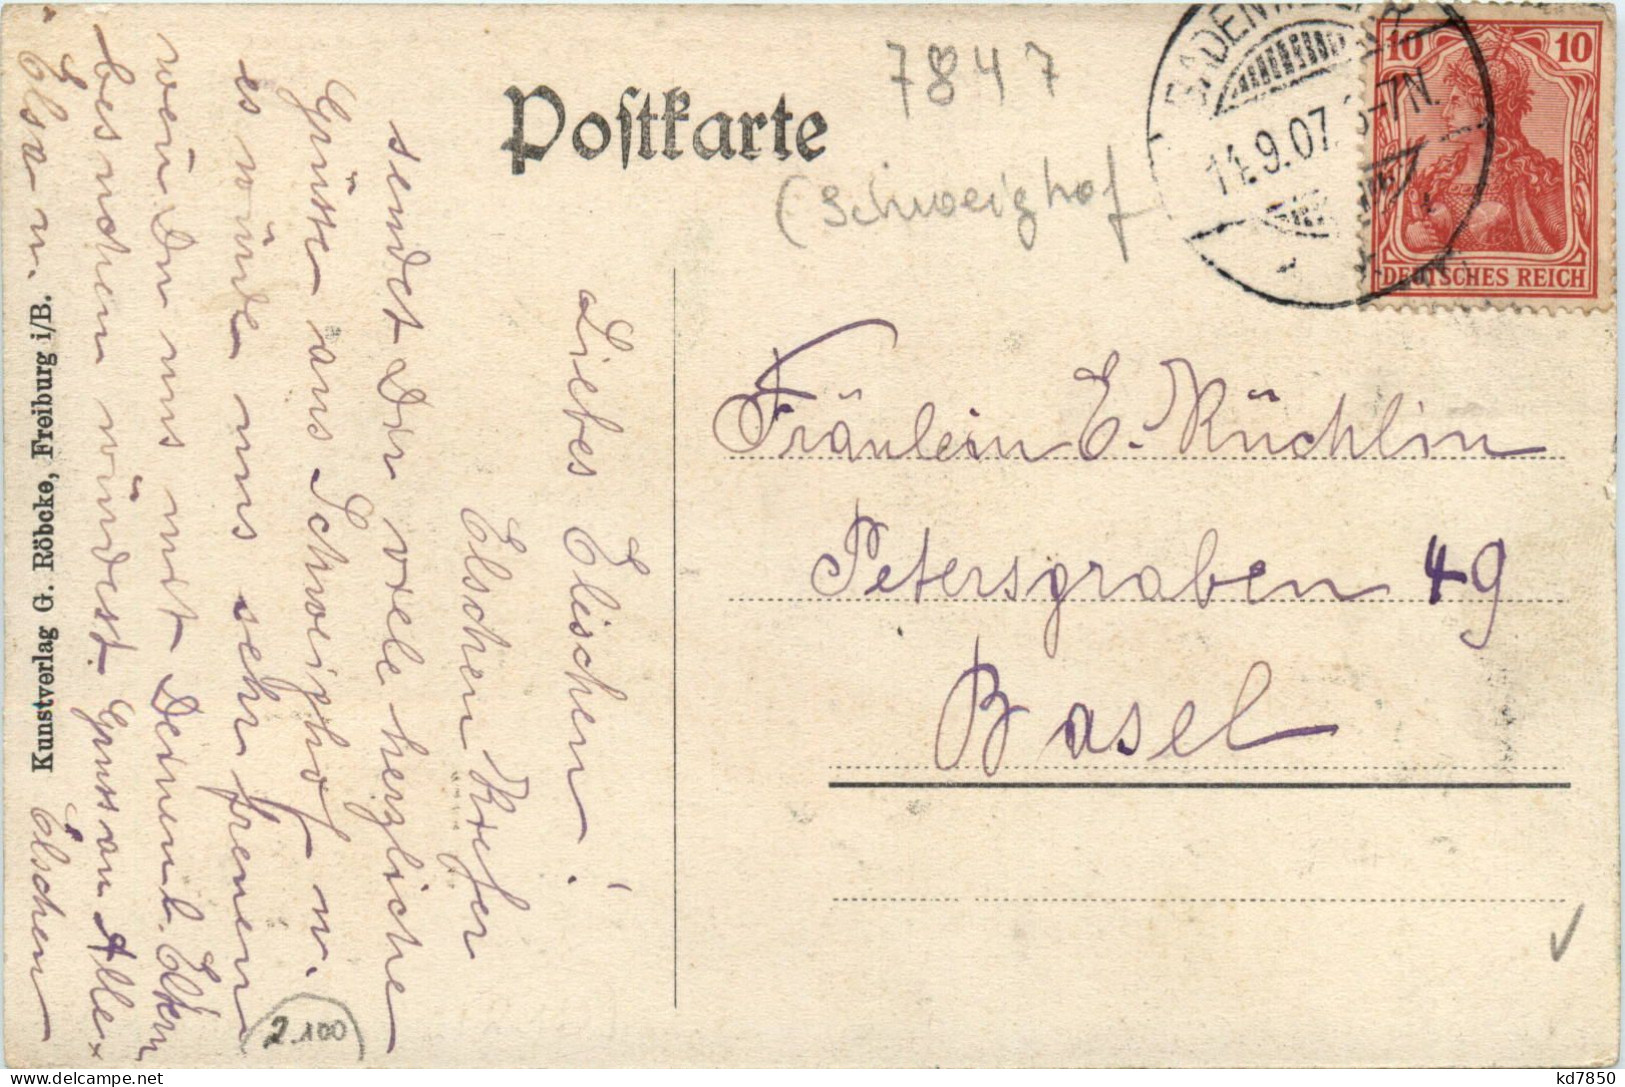 Postkarte
7847
(Schweighof
BADENWEILER
14.9.07. 6-7N.
10 10
DEUTSCHES REICH
Fräulein E. Küchlin
Petersgraben 49
Basel
Liebes Elischen!
Elschen Kiefer
sendet Dir viele herzliche
Grüsse aus Schweighof u.
es würde uns sehr freuen
wen Du uns mit Deinen l. Eltern
besuchen würdest. Gruss an Alle
Elsa u. Elschen
Kunstverlag G. Röbcke, Freiburg i/B.
2.100
kd7850